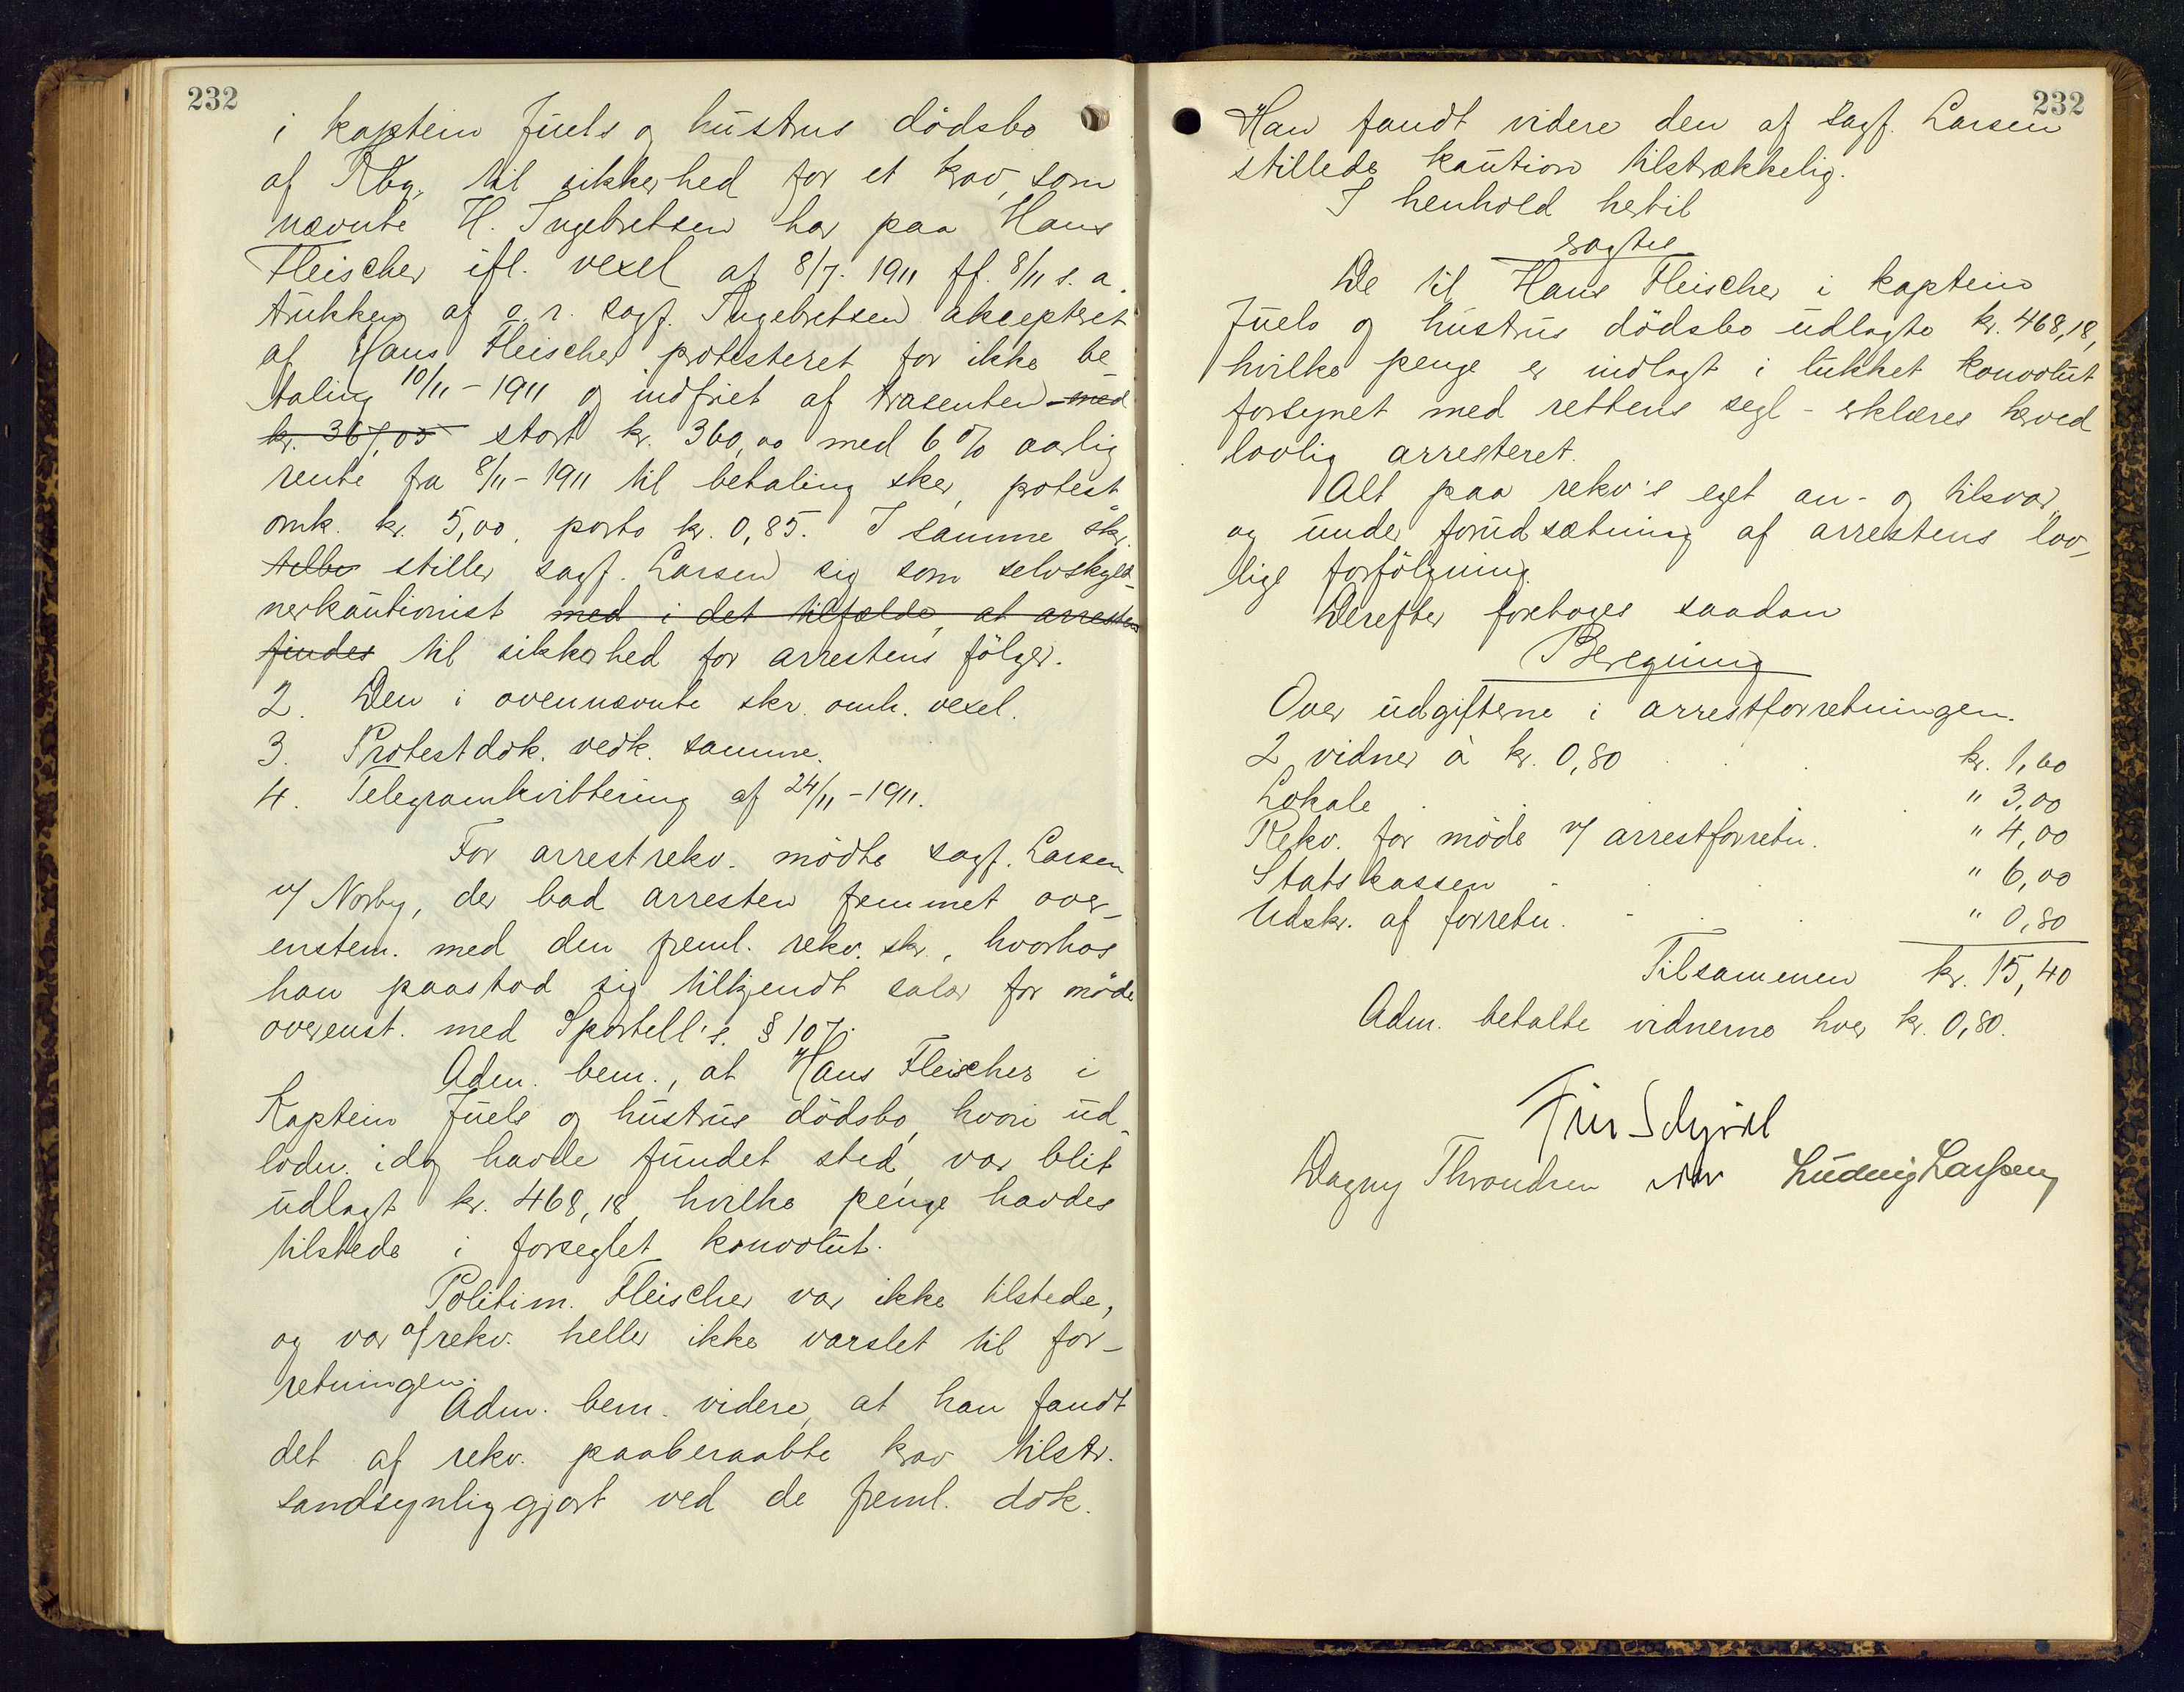 232
i kaptein Juels og hustrus dödsbo
af Kbg. til sikkerhed for et krav, som
nævnte H. Ingebretsen har paa Hans
Fleischer ifl. vexel af 8/7. 1911 ff. 8/11 s. a.
trukken af o. r. sagf. Ingebretsen akcepteret
af Hans Fleischer protesteret for ikke be-
taling 10/11 - 1911 og indfriet af trasenten med
kr. 367,05 stort kr. 360,00 med 6 % aarlig
rente fra 8/11 - 1911 til betaling sker, protest
omk. kr. 5,00, porto kr. 0,85. I samme skr.
stiller sagf. Larsen sig som selvskyld-
nerkautionist med i det tilfælde, at arresten
findes til sikkerhed for arrestens fölger.
2. Den i ovennævnte skr. omh. vexel.
3. Protestdok. vedk. samme.
4. Telegramkvittering af 24/11 - 1911.
For arrestrekv. mödte sagf. Larsen
v/ Norby, der bad arresten fremmet over-
enstem. med den freml. rekv. skr., hvorhos
han paastod sig tilkjendt salær for möde
overenst. med Sportell's. § 107.
Adm. bem., at Hans Fleischer i
Kaptein Juels og hustrus dödsbo, hvori ud-
lodn. idag havde fundet sted, var blit
udlagt kr. 468,18, hvilke penge havdes
tilstede i forseglet konvolut.
Politim. Fleischer var ikke tilstede,
og var af rekv. heller ikke varslet til for-
retningen.
Adm. bem. videre, at han fandt
det af rekv. paaberaabte krav tilstr.
sandsynliggjort ved de freml. dok.
232
Han fandt videre den af sagf. Larsen
stillede kaution tilstrækkelig.
I henhold hertil
eragtes
De til Hans Fleischer i kaptein
Juels og hustrus dödsbo udlagte kr. 468,18,
hvilke penge er indlagt i lukket konvolut
forsynet med rettens segl - erklæres herved
lovlig arresteret.
Alt paa rekv's eget an- og tilsvar
og under forudsætning af arrestens lov-
lige forfölgning.
Derefter foretoges saadan
Beregning
Over udgifterne i arrestforretningen.
2 vidner à kr. 0,80 kr. 1,60
Lokale " 3,00
Rekv. for möde v/ arrestforretn. " 4,00
Statskassen " 6,00
Udskr. af forretn. " 0,80
Tilsammen kr. 15,40
Adm. betalte vidnerne hver kr. 0,80.
Dagny Throndsen Ludvig Larssen